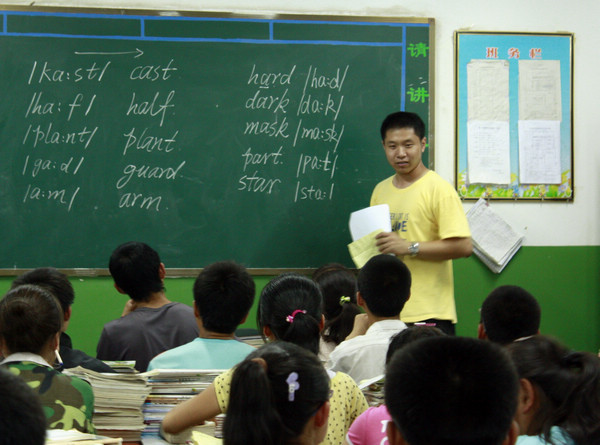 /ka:st/ cast
/ha:f/ half
/pla:nt/ plant
/ga:d/ guard
/a:m/ arm.
hard /ha:d/
dark /da:k/
mask /ma:sk/
part. /pa:t/
star /sta:/
请
讲
班务栏